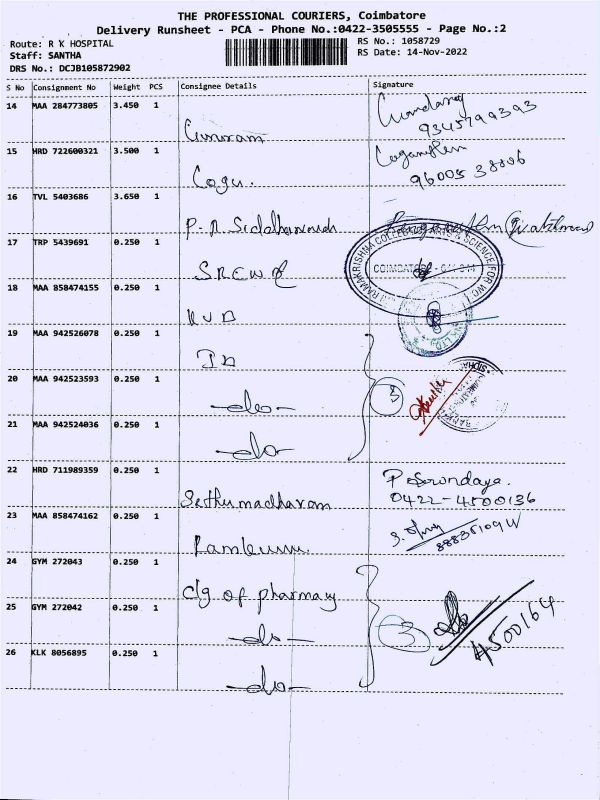 THE PROFESSIONAL COURIERS, Coimbatore
Delivery Runsheet - PCA - Phone No.:0422-3505555 - Page No.:2
Route: R K HOSPITAL
RS No.: 1058729
Staff: SANTHA
RS Date: 14-Nov-2022
DRS No.: DCJB105872902
S No Consignment No Weight PCS Consignee Details Signature
14 MAA 284773805 3.450 1
9345799393
15 HRD 722600321 3.500 1
Cogu.
96005 38806
16 TVL 5403686 3.650 1
17 TRP 5439691 0.250 1
SREWC
RAMAKRISHNA COLLEGE OF ARTS & SCIENCE FOR WO
COIMBATORE
18 MAA 858474155 0.250 1
KVB
19 MAA 942526078 0.250 1
IB
20 MAA 942523593 0.250 1
-do-
3
21 MAA 942524036 0.250 1
-do-
22 HRD 711989359 0.250 1
Sethumadhavan
0422-4500136
23 MAA 858474162 0.250 1
24 GYM 272043 0.250 1
clg of pharmacy
25 GYM 272042 0.250 1
-do-
3
4500164
26 KLK 8056895 0.250 1
-do-